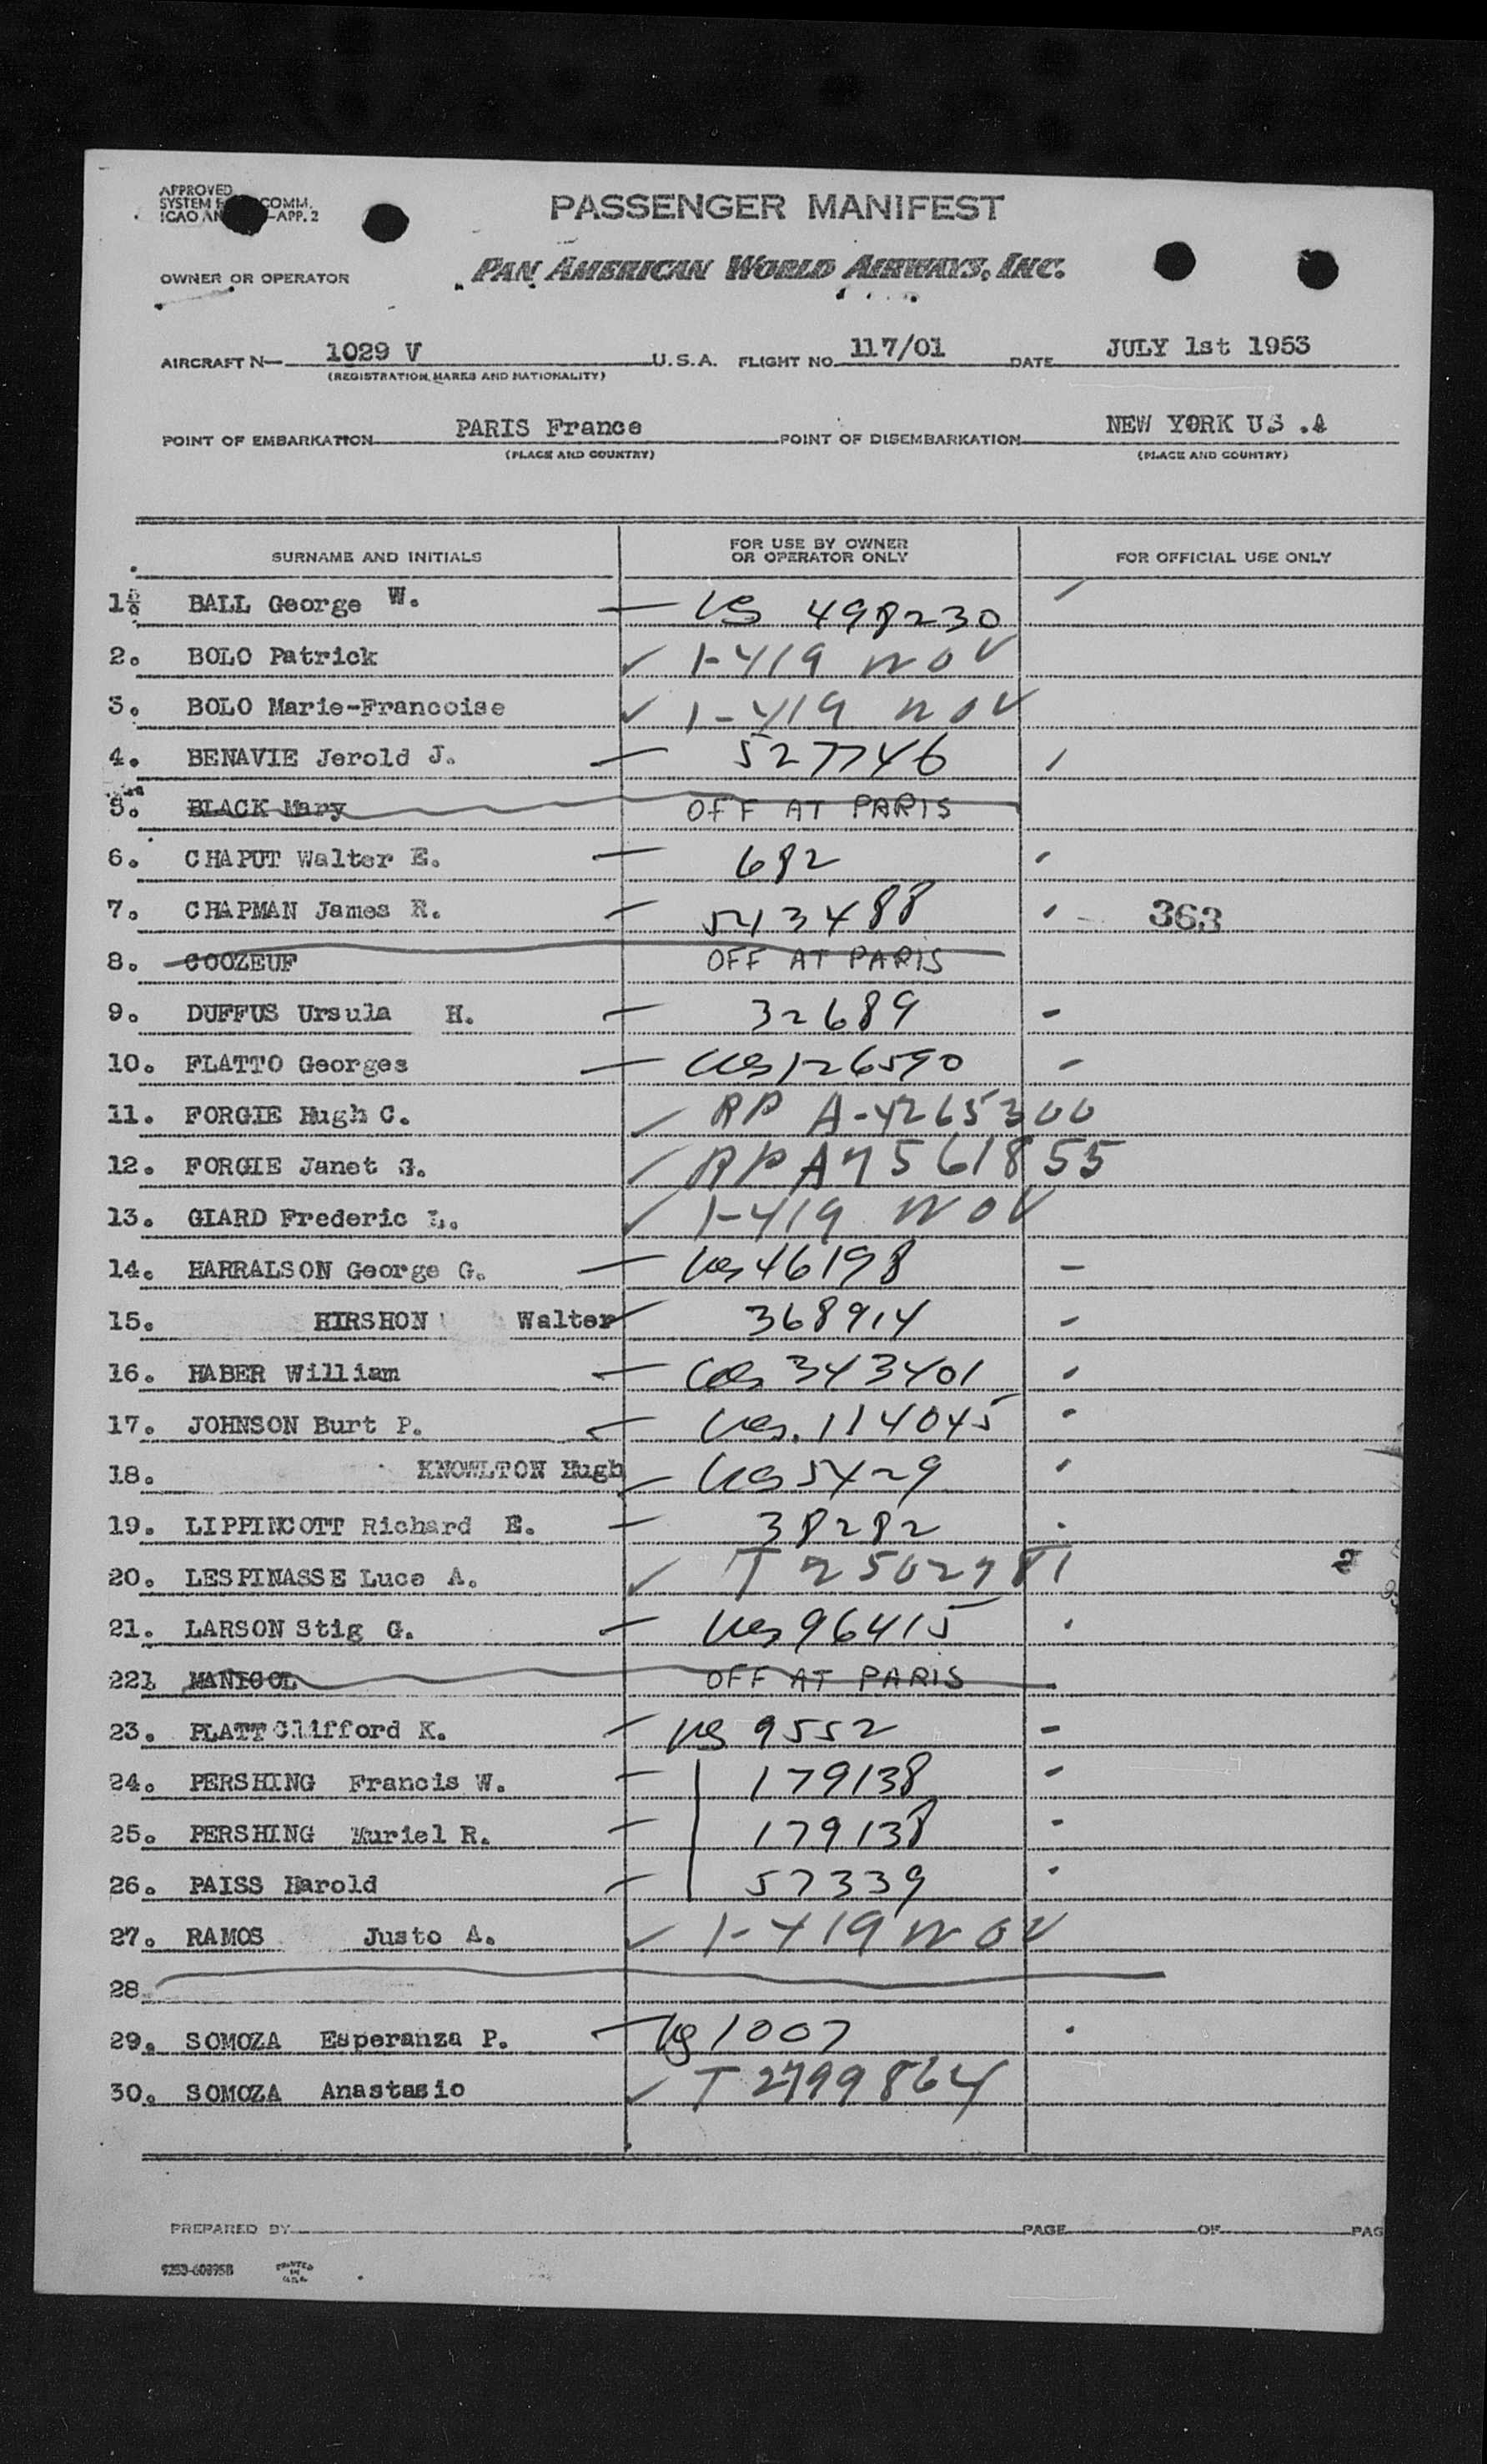 APPROVED
SYSTEM COMM.
ICAO AN -APP. 2
PASSENGER MANIFEST
OWNER OR OPERATOR PAN AMERICAN WORLD AIRWAYS, INC.
AIRCRAFT N- 1029 V U.S.A. FLIGHT NO. 117/01 DATE JULY 1st 1953
(REGISTRATION MARKS AND NATIONALITY)
POINT OF EMBARKATION PARIS France POINT OF DISEMBARKATION NEW YORK US .A
(PLACE AND COUNTRY) (PLACE AND COUNTRY)
SURNAME AND INITIALS FOR USE BY OWNER OR OPERATOR ONLY FOR OFFICIAL USE ONLY
1. BALL George W. — US 498230
2. BOLO Patrick ✓ 1-419 NOV
3. BOLO Marie-Francoise ✓ 1-419 NOV
4. BENAVIE Jerold J. — 527746
5. BLACK Mary OFF AT PARIS
6. CHAPUT Walter E. — 682
7. CHAPMAN James R. — 543488 363
8. COOZEUF OFF AT PARIS
9. DUFFUS Ursula H. — 32689
10. FLATTO Georges — US 126590
11. FORGIE Hugh C. ✓ RP A-4265300
12. FORGIE Janet G. ✓ RP A7561855
13. GIARD Frederic L. ✓ 1-419 NOV
14. HARRALSON George G. — US 46198
15. HIRSHON Walter 368914
16. HABER William — US 343401
17. JOHNSON Burt P. — US. 114045
18. KNOWLTON Hugh — US 5429
19. LIPPINCOTT Richard E. — 38282
20. LESPINASSE Luce A. ✓ T 2502781 2
21. LARSON Stig G. — US 96415
22. MANIGOL OFF AT PARIS
23. PLATT Clifford K. — US 9552
24. PERSHING Francis W. — 179138
25. PERSHING Muriel R. — 179138
26. PAISS Harold — 57339
27. RAMOS Justo A. ✓ 1-419 NOV
28
29. SOMOZA Esperanza P. — US 1007
30. SOMOZA Anastasio ✓ T 2799864
PREPARED BY PAGE OF PAG
PRINTED IN U.S.A.